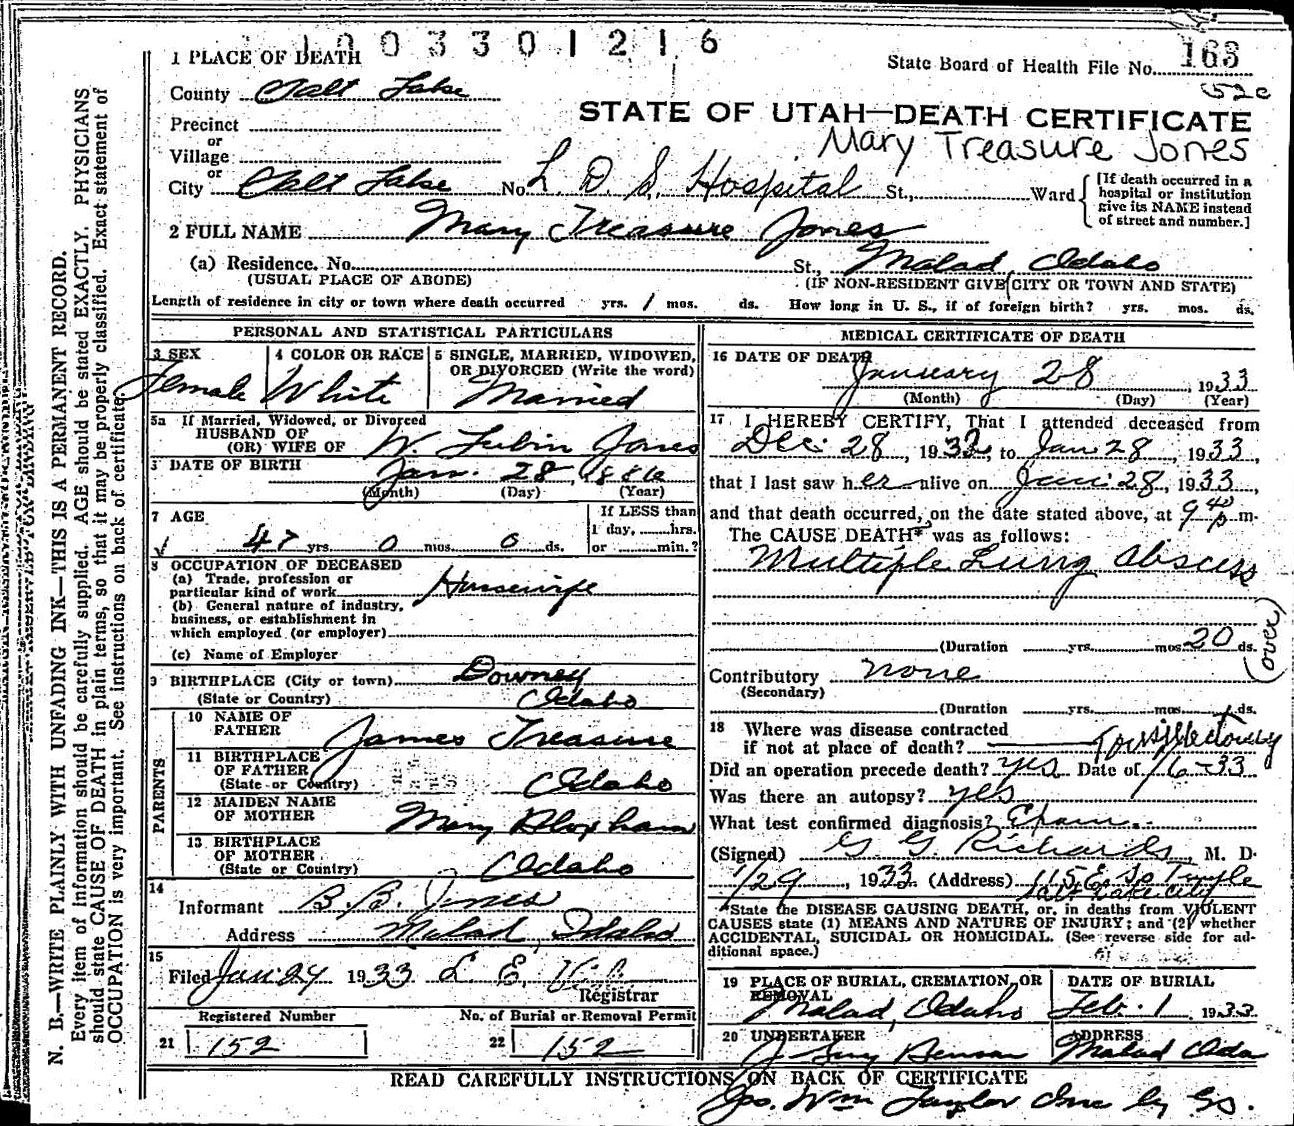 1003301216
1 PLACE OF DEATH
State Board of Health File No. 163
52c
County Salt Lake
STATE OF UTAH—DEATH CERTIFICATE
Precinct
or
Mary Treasure Jones
Village
or
City Salt Lake No. L. D. S. Hospital St., Ward
[If death occurred in a hospital or institution give its NAME instead of street and number.]
2 FULL NAME Mary Treasure Jones
(a) Residence. No. St., Malad, Idaho
(USUAL PLACE OF ABODE) (IF NON-RESIDENT GIVE CITY OR TOWN AND STATE)
Length of residence in city or town where death occurred yrs. 1 mos. ds. How long in U. S., if of foreign birth? yrs. mos. ds.
PERSONAL AND STATISTICAL PARTICULARS
3 SEX
Female
4 COLOR OR RACE
White
5 SINGLE, MARRIED, WIDOWED, OR DIVORCED (Write the word)
Married
5a If Married, Widowed, or Divorced
HUSBAND OF
(OR) WIFE OF W. Jones
DATE OF BIRTH Jan. 28, 1886
(Month) (Day) (Year)
7 AGE
47 yrs. 0 mos. 0 ds.
If LESS than
1 day, hrs.
or min.?
8 OCCUPATION OF DECEASED
(a) Trade, profession or
particular kind of work Housewife
(b) General nature of industry,
business, or establishment in
which employed (or employer)
(c) Name of Employer
9 BIRTHPLACE (City or town) Downey
(State or Country) Idaho
PARENTS
10 NAME OF
FATHER James Treasure
11 BIRTHPLACE
OF FATHER
(State or Country) Idaho
12 MAIDEN NAME
OF MOTHER Mary Bloxham
13 BIRTHPLACE
OF MOTHER
(State or Country) Idaho
14
Informant B. B. Jones
Address Malad, Idaho
15
Filed Jan 24 1933 L. E.
Registrar
Registered Number No. of Burial or Removal Permit
21 152 22 152
MEDICAL CERTIFICATE OF DEATH
16 DATE OF DEATH
January 28, 1933
(Month) (Day) (Year)
17 I HEREBY CERTIFY, That I attended deceased from
Dec. 28, 1932, to Jan 28, 1933,
that I last saw her alive on Jan. 28, 1933,
and that death occurred, on the date stated above, at 9 40 p m.
The CAUSE DEATH* was as follows:
Multiple Lung Abscess
(Duration yrs. mos. 20 ds.
(over)
Contributory none
(Secondary)
(Duration yrs. mos. ds.
18 Where was disease contracted
if not at place of death? Tonsillectomy
Did an operation precede death? yes Date of 1/6-33
Was there an autopsy? yes
What test confirmed diagnosis? Exam.
(Signed) G. G. Richards, M. D.
1/29, 1933 (Address) 115 E. So Temple
Salt Lake City
*State the DISEASE CAUSING DEATH, or, in deaths from VIOLENT
CAUSES state (1) MEANS AND NATURE OF INJURY; and (2) whether
ACCIDENTAL, SUICIDAL OR HOMICIDAL. (See reverse side for ad-
ditional space.)
19 PLACE OF BURIAL, CREMATION, OR
REMOVAL
Malad, Idaho
DATE OF BURIAL
Feb. 1 1933
20 UNDERTAKER
Benson
ADDRESS
Malad Ida
READ CAREFULLY INSTRUCTIONS ON BACK OF CERTIFICATE
Jos. Wm Taylor Inc by
N. B.—WRITE PLAINLY WITH UNFADING INK—THIS IS A PERMANENT RECORD.
Every item of information should be carefully supplied. AGE should be stated EXACTLY. PHYSICIANS
should state CAUSE OF DEATH in plain terms, so that it may be properly classified. Exact statement of
OCCUPATION is very important. See instructions on back of certificate.